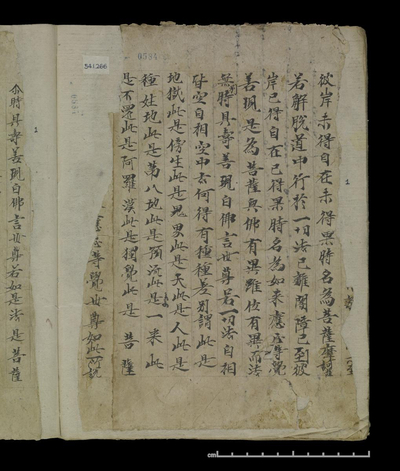 彼岸未得自在未得果時名為菩薩摩訶
若解脫道中行於一切法已離闇障已至彼
岸已得自在已得果時名為如來應正等覺
善現是為菩薩與佛有異雖位有異而法
無
時具壽善現白佛言世尊若一切法自相
皆空自相空中云何得有種種差別謂此是
地獄此是傍生此是鬼界此是天此是人此是
種姓地此是第八地此是預流此是一來此
是不還此是阿羅漢此是獨覺此是菩薩
應正等覺世尊如此所說
尒時具壽善現白佛言世尊若如是法是菩薩
541266
cm